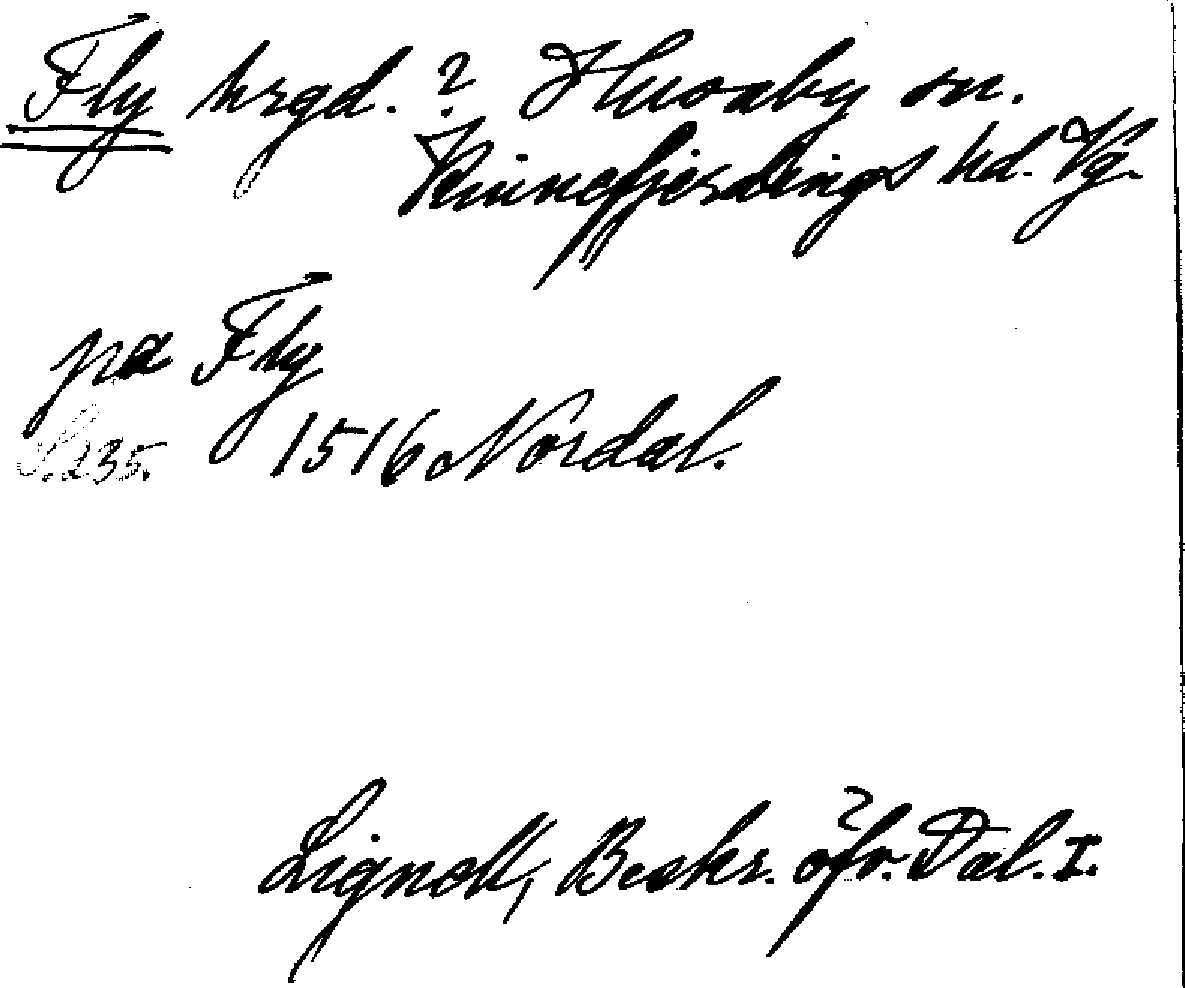 Fly hrgd. ? Husaby sn.
Kinnefjerdings hd. Vg.
pa Fly
S. 235. 1516 Nordal.
Lignell, Beskr. öfv. Dal. I.